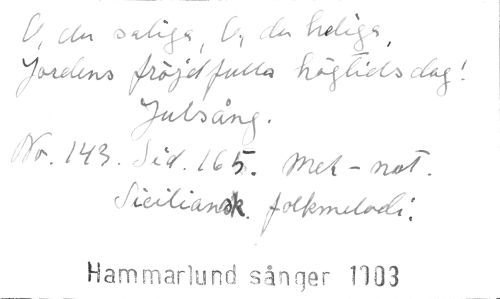 O, du saliga, O, du heliga,
Jordens fröjdfulla högtidsdag!
Julsång.
No. 143. Sid. 165. Mek-not.
Siciliansk. folkmelodi.
Hammarlund sånger 1903